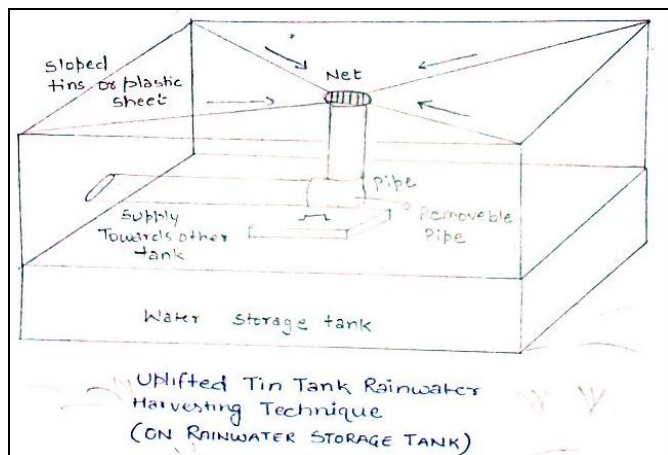 Sloped
tins or plastic
sheet
Net
Pipe
Removable
Pipe
Supply
Towards other
tank
Water storage tank
Uplifted Tin Tank Rainwater
Harvesting Technique
(ON RAINWATER STORAGE TANK)